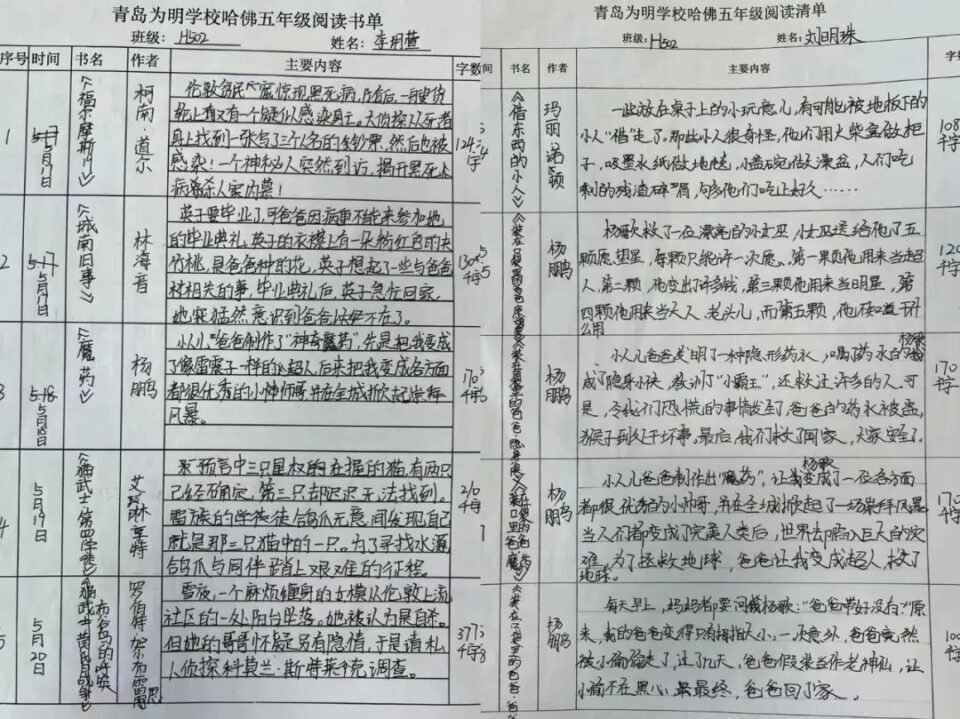 青岛为明学校哈佛五年级阅读书单
班级: H502 姓名: 李玥萱
序号 时间 书名 作者 主要内容 字数
1
5月17日
《福尔摩斯》
柯南·道尔
伦敦贫民区
惊现黑死病,随后,一艘货
轮上有又有一个疑似感染员工。大侦探从死者
身上找到一张写了三个人名的金钞票,然后也被
感染!一个神秘人突然到访,揭开黑死病
病毒杀人案内幕!
2
5月17日
《城南旧事》
林海音
英子要毕业了,可爸爸因病重不能来参加她
的毕业典礼。英子的衣襟上有一朵粉红色的夹
竹桃,是爸爸种的花,英子想起了一些与爸爸
被相关的事,毕业典礼后,英子急忙回家,
她突猛然意识到爸爸
不在了。
3
5月18日
《魔药》
杨鹏
小人儿“爸爸制作了“神奇魔药”,先是把我变成
了像雷震子一样的超人,后来把我变成各方面
都很优秀的小帅哥并在全城掀起崇拜
风暴。
170千字
4
5月19日
《猫武士·第四学徒》
艾琳·亨特
预言中三只星权在握的猫,有两只
已经确定,第三只却迟迟无法找到。
雷族的学徒鸽爪无意间发现自己
就是那三只猫中的一只。为了寻找水源
鸽爪与同伴踏上艰难的征程。
210千字
5
5月20日
布谷鸟的呼唤
罗伯特·加尔布雷思
雪夜,一个麻烦缠身的女模从伦敦上流
社区的一处阳台坠落。她被认为是自杀。
但她的哥哥怀疑另有隐情,于是请私
人侦探科莫兰·斯特莱克调查。
377千字
青岛为明学校哈佛五年级阅读清单
班级: H502 姓名: 刘明珠
书名 作者 主要内容
《借东西的小人》
玛丽·诺顿
一些放在桌子上的小玩意儿,有可能被地板下的
小人“借”走了。那些小人很奇怪,他们用火柴盒做柜
子,吸墨水纸做地毯,小盐碗做澡盆,人们吃
剩的残渣碎屑,够他们吃上好久……
108千字
杨鹏
杨歌救了一位漂亮的小女巫,女巫送给他了五
颗愿望星,每颗只能许一次愿。第一颗他用来当超
人,第二颗,他变出了许多钱,第三颗他用来当明星,第
四颗他用来当大人、老头儿,而第五颗,他不知道干什
么用
120千字
杨鹏
小人儿爸爸发明了一种隐形药水,喝了药水的杨歌
成了隐身小侠,教训了“小霸王”,还救过许多的人,可
是,令我们恐慌的事情发生了,爸爸的药水被盗,
猴子到处干坏事。最后,我们救了国家,大家安全了。
170千字
杨鹏
小人儿爸爸制作出“魔药”,让杨歌变成了一位各方面
都很优秀的小帅哥,并在全城掀起了一场崇拜风暴
当人们都变成了完美人类后,世界却陷入巨大的灾
难。为了拯救地球,爸爸让我变成超人,救了
地球。
170千字
杨鹏
每天早上,妈妈都要问我杨歌:“爸爸带好没有?”原
来,我的爸爸变得只有拇指大小。一次意外,爸爸竟然
被小偷偷走了,过了几天,爸爸假装当作老神仙,让
小偷不在黑心,最终,爸爸回了家。